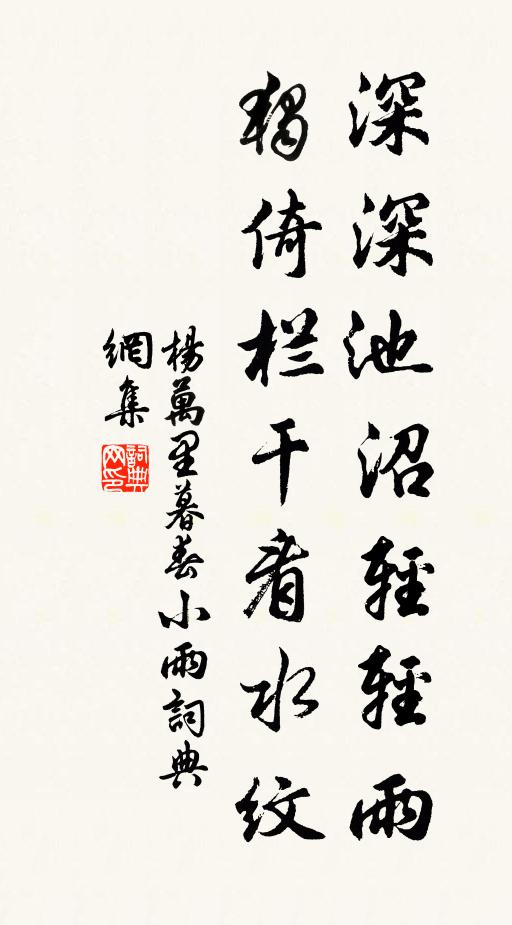 深深池沼輕輕雨
獨倚栏干看水纹
楊萬里暮春小雨詞典
網集
詞典
网印